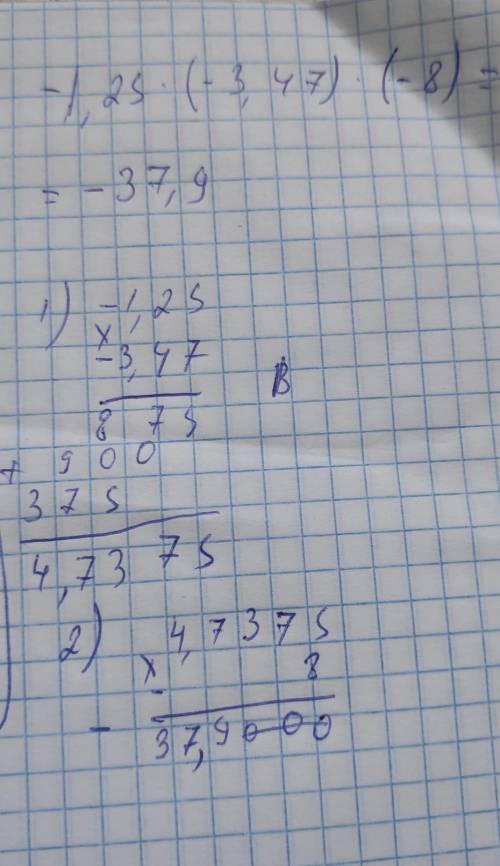 -1,25 · (-3,47) · (-8) =
= -37,9
1) -1,25
×
-3,47
8 75
+ 900
375
4,7375
2) 4,7375
×
- 8
- 37,9000